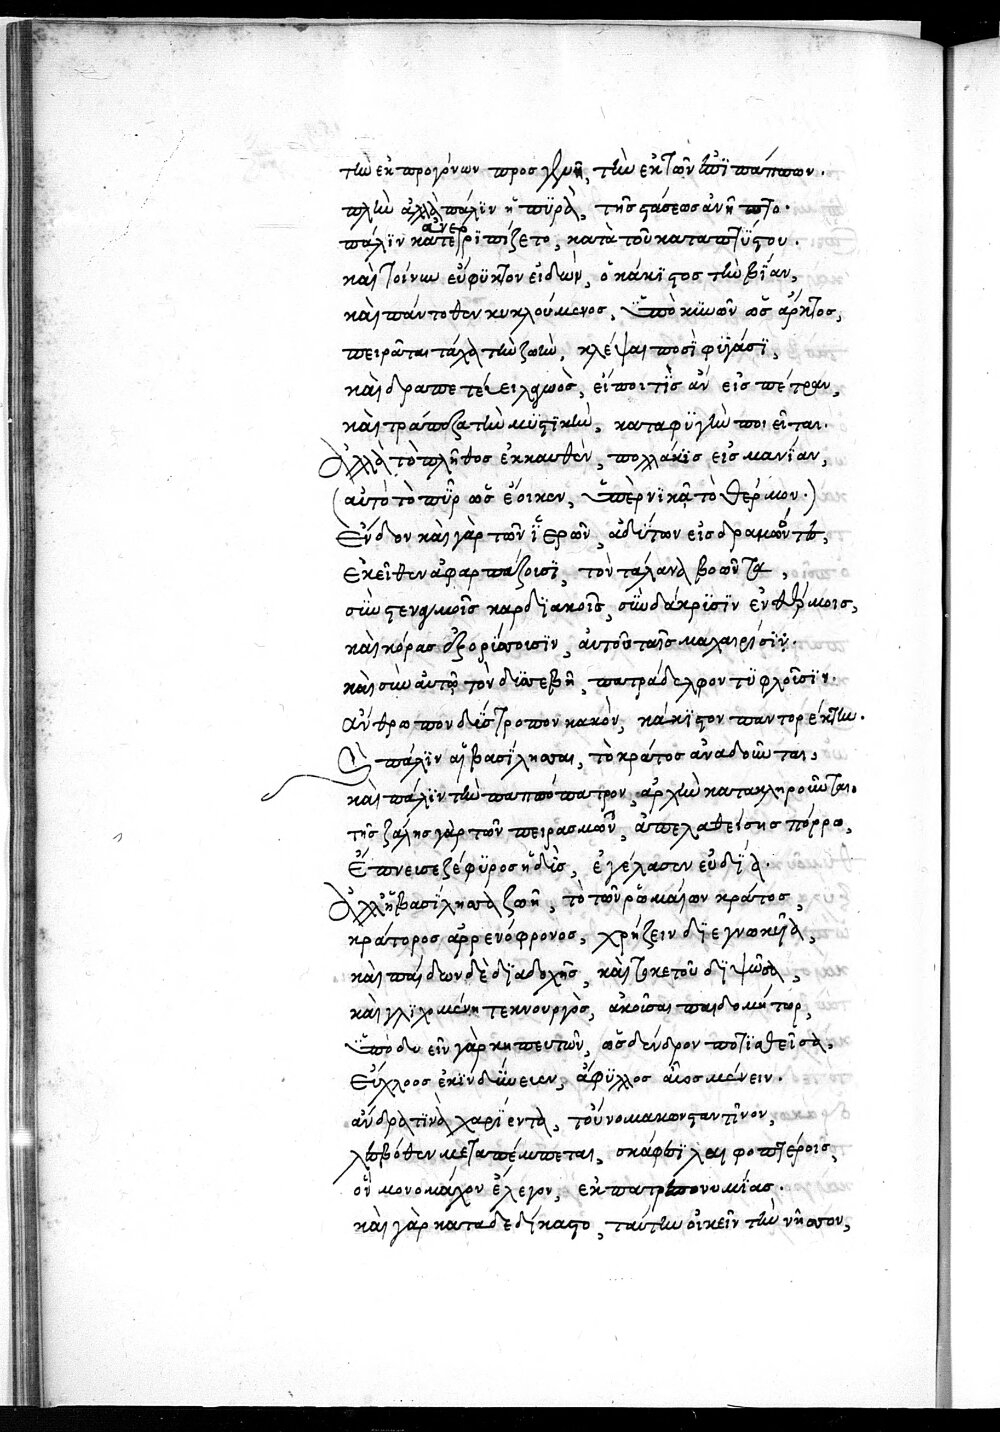 τὴν ἐκ προγόνων προσγενῆ, τὴν ἐκ τῶν ἐπιπάππων.
πλὴν ἀλλὰ πάλιν ἡ πυρὰ, τῆς στάσεως ἀνήπτο.
πάλιν κατερριπίζετο, κατὰ τοῦ καταπτύστου.
ἀνερ
καὶ τοίνυν εὔφυκτον εἰδὼν, ὁ κάκιστος τὴν βίαν,
καὶ πάντοθεν κυκλούμενος, ὑπὸ κυνῶν ὡς ἄρκτος,
πειρᾶται τάχα τὴν ζωὴν, κλέψαι ποσὶ φυγάσι,
καὶ δραπετεύει λαγωὸς, εἴποι τὶς ἂν εἰς πέτραν,
καὶ τράπεζα τὴν μυστικὴν, καταφυγὴν ποιεῖται.
Ἀλλὰ τὸ πλῆθος ἐκκαυθὲν, πολλάκις εἰς μανίαν,
(αὐτὸ τὸ πῦρ ὡς ἔοικεν, ὑπὲρνικᾷ τὸ θέρμον.)
Ἔνδον καὶ γὰρ τῶν ἱερῶν, ἀδύτων εἰσδραμόντες,
ἐκεῖθεν ἀφαρπάζοισι, τὸν τάλανα βοῶντα,
σὺν στεναγμοῖς καρδιακοῖς, σὺν δάκρυσιν ἐνθέρμοις,
καὶ κόρας ἐξορύττοισιν, αὐτοῦ ταῖς μαχαιρίσιν.
καὶ σὺν αὐτῷ τὸν δυσσεβῆ, πατράδελφον τυφλοῖσιν.
ἄνθρωπον δύστροπον κακὸν, κάκιστον παντορέκτην.
Οὕ πάλιν αἱ βασίλισσαι, τὸ κράτος ἀναδοῦνται,
καὶ πάλιν τὴν παππόπατρον, ἀρχὴν κατακληροῦνται.
τῆς ζάλης γὰρ τῶν πειρασμῶν, ἀπελαθείσης πόρρω,
Ἔπνευσε ζέφυρος ἡδὺς, ἐγέλασεν εὐδία.
Ἀλλ' ἡ βασίλισσα ζωὴ, τὸ τῶν ῥωμαίων κράτος,
κράτορος ἀρρενόφρονος, χρήζειν διεγνωκυῖα,
καὶ παίδων δὲ διαδοχῆς, καὶ τοκετοῦ διψῶσα,
καὶ γλιχομένη τεκνουργὸς, ἀκοῦσαι παιδομήτωρ,
ὑπὸ δυεῖν γὰρ κηπευτῶν, ὡς δένδρον ποτισθεῖσα,
Εὔχλοος ἐκινδύνευεν, ἄφυλλος αὖος μένειν.
ἄνδρα τινὰ χαρίεντα, τοὔνομα κωνσταντῖνον,
λεσβόθεν μεταπέμπεται, σκάφει λαιφοπτέροις,
ὃν μονομάχον ἔλεγον, ἐκ πατρεπονυμίας.
καὶ γὰρ καταδεδίκαστο, ταύτην οἰκεῖν τὴν νῆσσον,